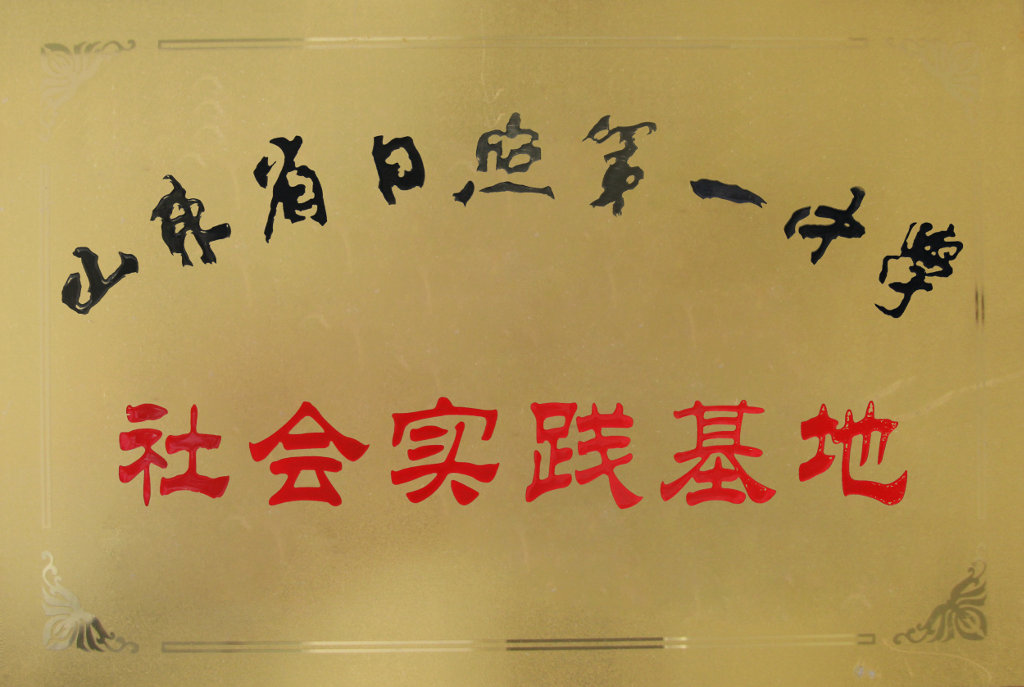 山东省日照第一中学
社会实践基地